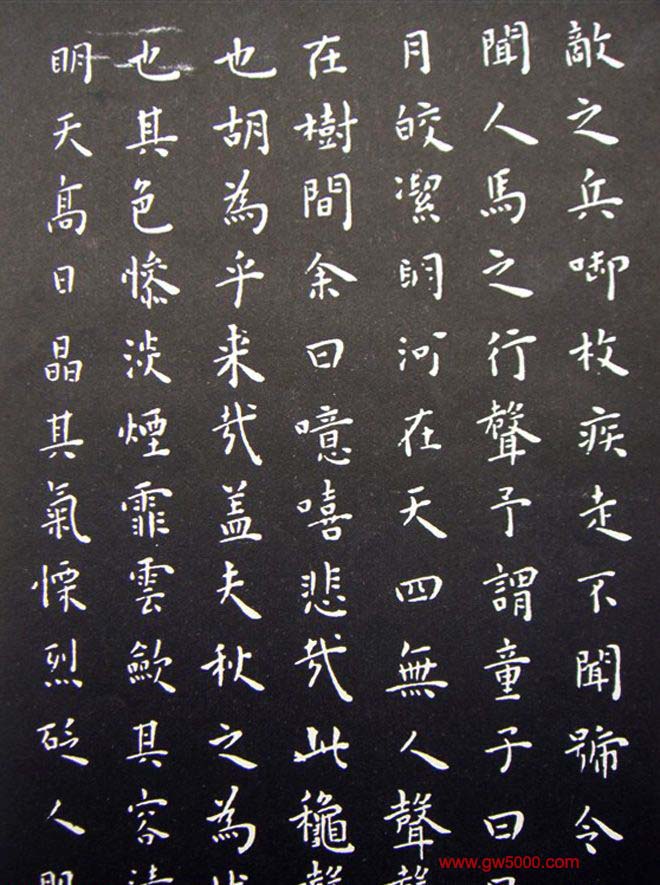 敵之兵啣枚疾走不聞號令
聞人馬之行聲予謂童子曰
月皎潔眀河在天四無人聲
在樹間余曰噫嘻悲哉此龝
也胡為乎来哉盖夫秋之為
也其色惨淡煙霏雲歛其容
眀天髙日晶其氣慄烈砭人
www.gw5000.com